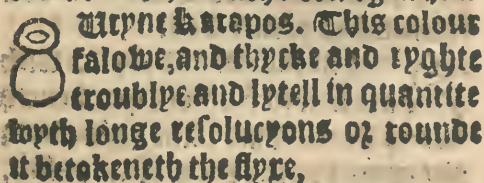 Uryne Karapos. This colour
falowe, and thycke and ryghte
troublye and lytell in quantite
wyth longe resolucyons oꝛ rounde
it betokeneth the flyxe,